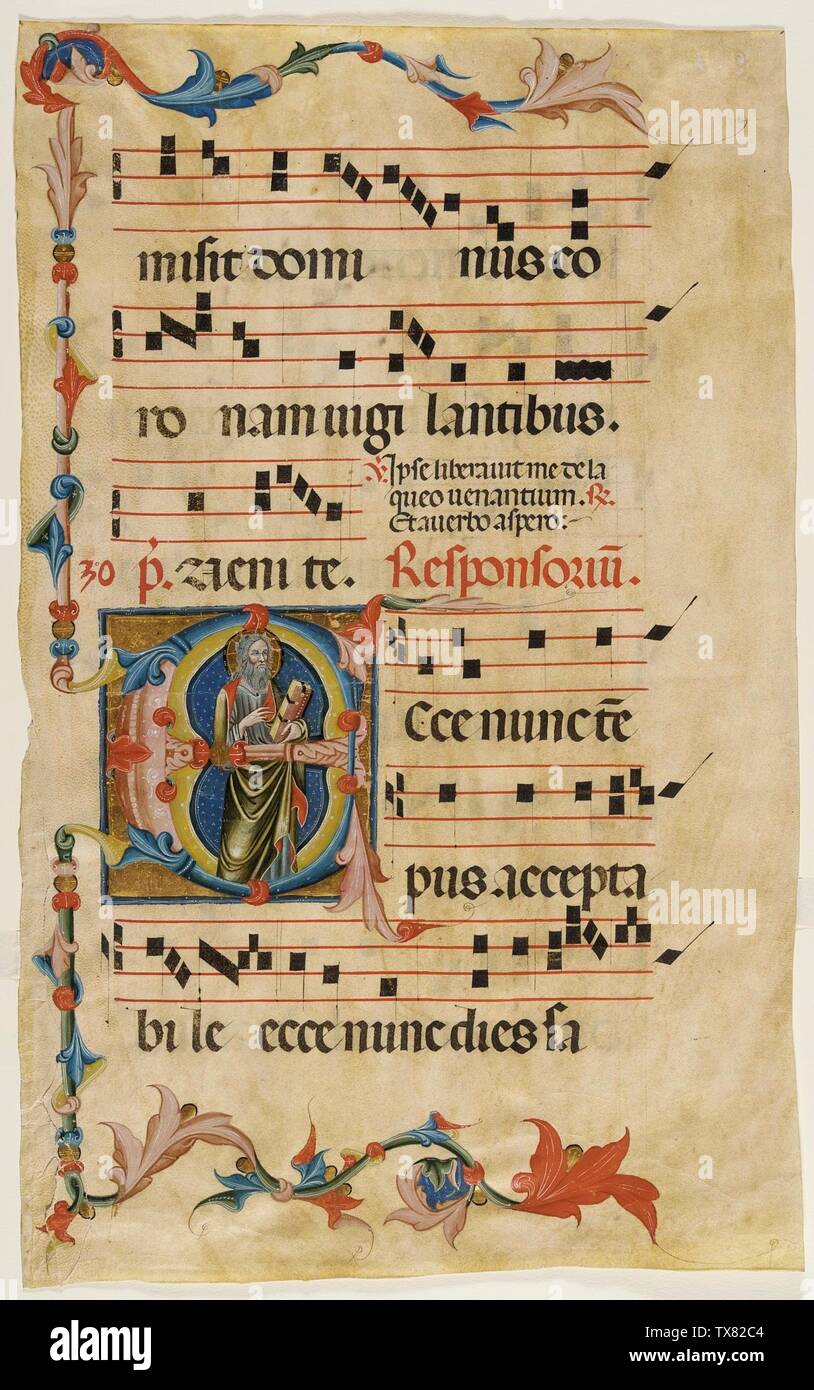 misit domi nus co
ro nam uigi lantibus.
℣. Ipse liberauit me de la
queo uenantium. ℟.
Et a uerbo aspero:-
p̓. Ueni te. Responsoriū.
Ecce nunc tē
pus accepta
bi le ecce nunc dies sa
alamy
alamy
Image ID: TX82C4
www.alamy.com